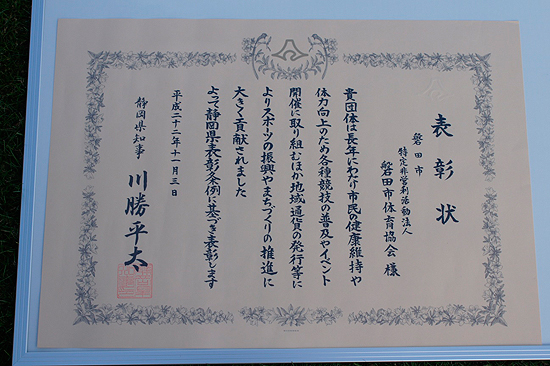 表彰状
磐田市
特定非営利活動法人
磐田市体育協会 様
貴団体は長年にわたり市民の健康維持や
体力向上のため各種競技の普及やイベント
開催に取り組むほか地域通貨の発行等に
よりスポーツの振興やまちづくりの推進に
大きく貢献されました
よって静岡県表彰条例に基づき表彰します
平成二十二年十一月三日
静岡県知事 川勝平太